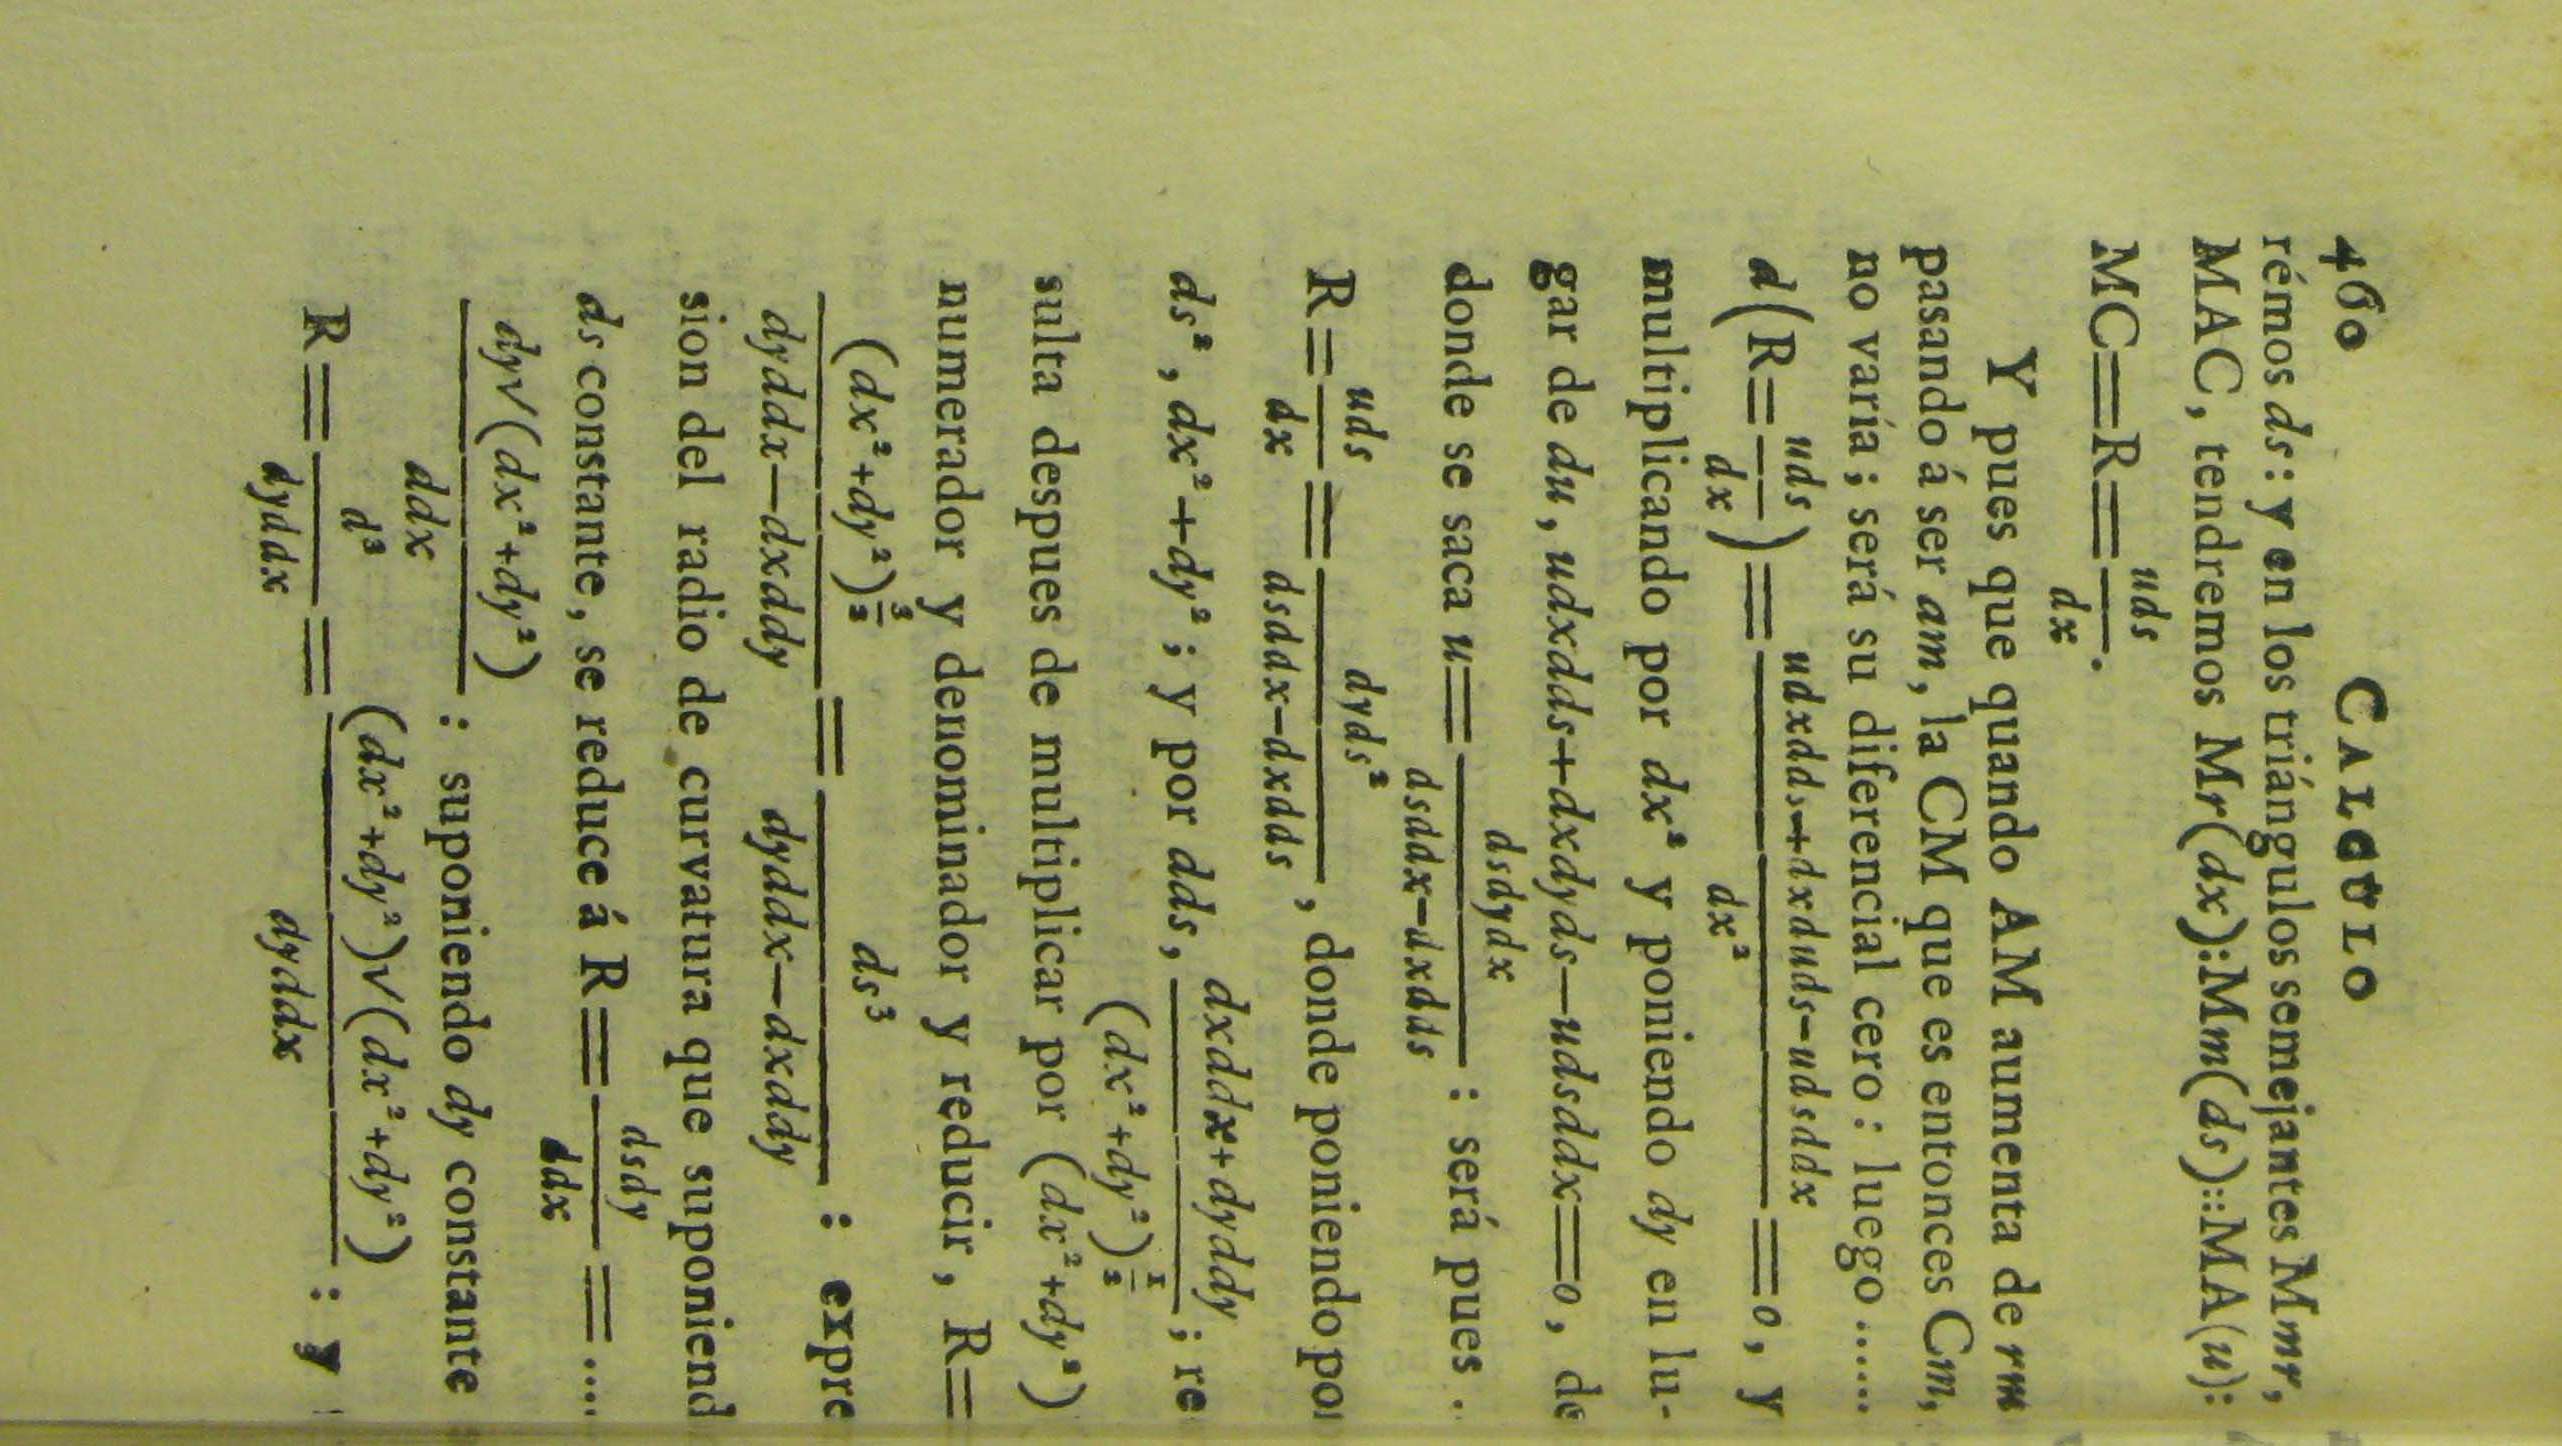 460 CALCULO
rémos ds: y en los triángulos semejantes Mmr,
MAC, tendremos Mr(dx):Mm(ds)::MA(u):
MC=R=uds/dx.
Y pues que quando AM aumenta de rm
pasando á ser am, la CM que es entonces Cm,
no varía; será su diferencial cero: luego......
d(R=uds/dx)=(udxdds+dxduds-udsddx)/dx²=0, y
multiplicando por dx² y poniendo dy en lu-
gar de du, udxdds+dxdyds-udsddx=0, de
donde se saca u=dsdydx/(dsddx-dxdds): será pues .
R=uds/dx=dyds²/(dsddx-dxdds), donde poniendo por
ds², dx²+dy²; y por dds, (dxddx+dyddy)/(dx²+dy²)^(1/2); re
sulta despues de multiplicar por (dx²+dy²)
numerador y denominador y reducir, R=
(dx²+dy²)^(3/2)/(dyddx-dxddy)=ds³/(dyddx-dxddy): expre
sion del radio de curvatura que suponiend
ds constante, se reduce á R=dsdy/ddx=....
dy√(dx²+dy²)/ddx: suponiendo dy constante
R=d³/dyddx=(dx²+dy²)√(dx²+dy²)/dyddx: y